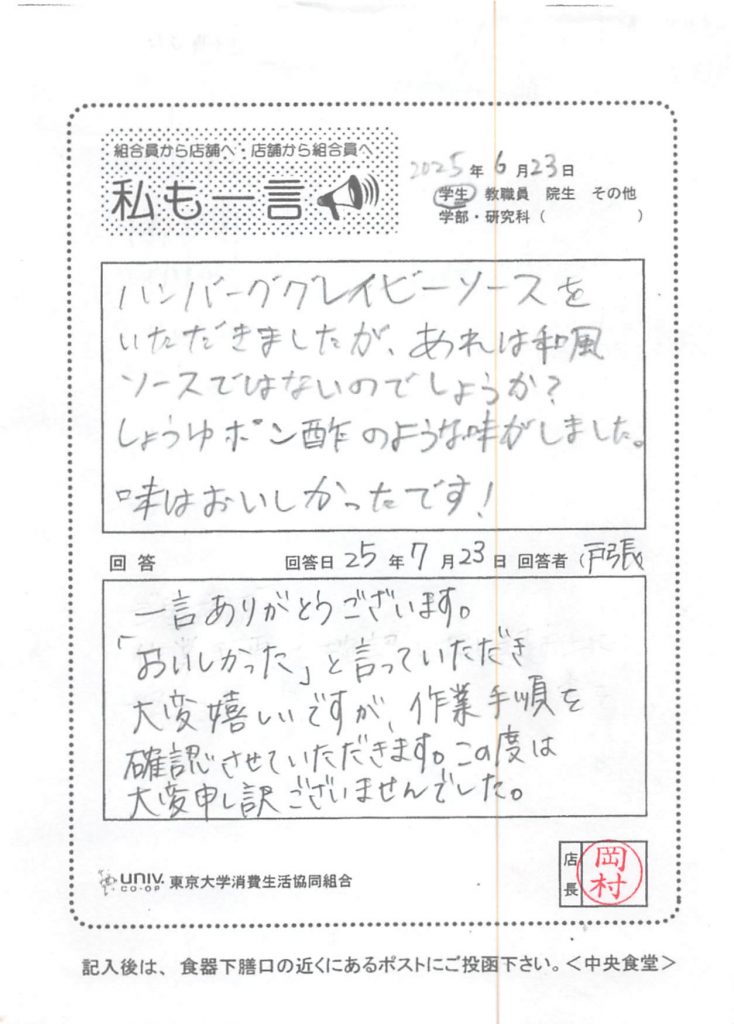 組合員から店舗へ・店舗から組合員へ
私も一言
2025年6月23日
学生 教職員 院生 その他
学部・研究科（ ）
ハンバーググレイビーソースを
いただきましたが、あれは和風
ソースではないのでしょうか?
しょうゆポン酢のような味がしました。
味はおいしかったです!
回答 回答日 25年7月23日 回答者（戸張
一言ありがとうございます。
「おいしかった」と言っていただき
大変嬉しいですが、作業手順を
確認させていただきます。この度は
大変申し訳ございませんでした。
UNIV. CO-OP 東京大学消費生活協同組合
店長 岡村
記入後は、食器下膳口の近くにあるポストにご投函下さい。＜中央食堂＞